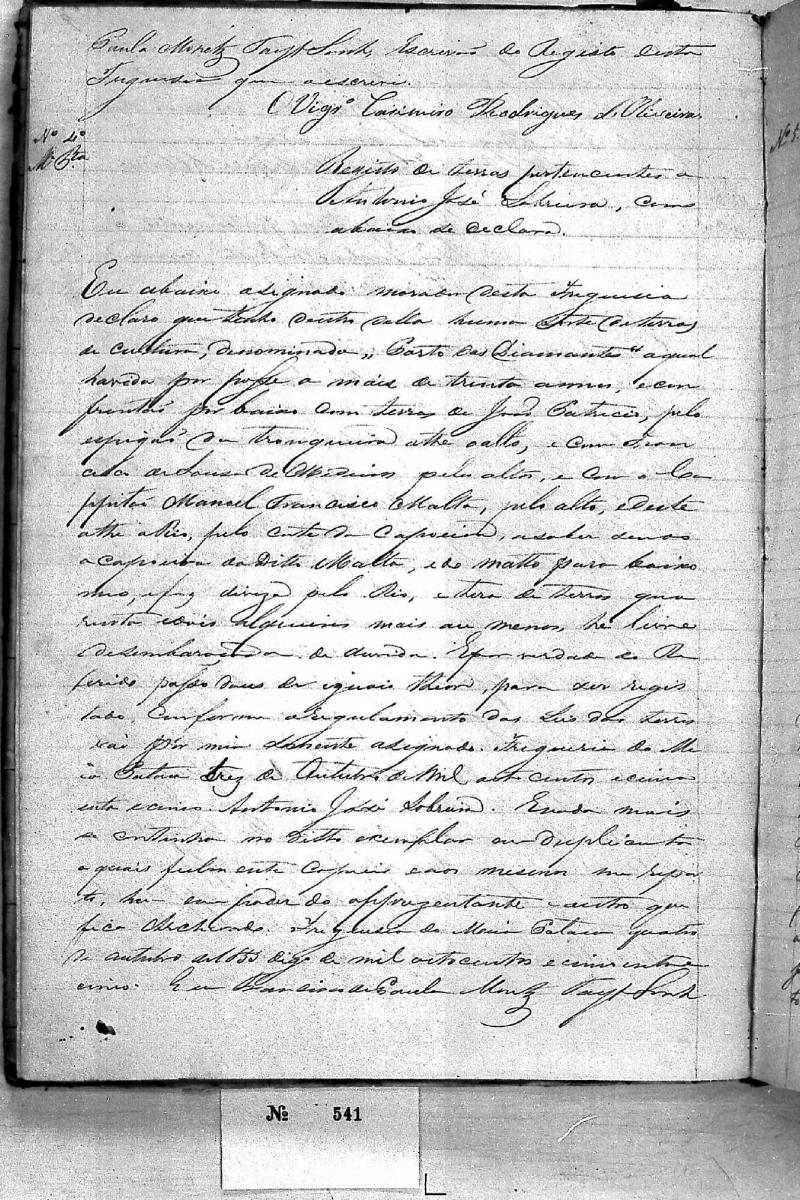 Paula Escrivão do Registo desta
Freguesia que o escrevi.
O Vigrº Casimiro Rodrigues d'Oliveira.
Nº 4º
Registo de terras pertencentes a
Antonio José Sobreira, como
abaixo se declara.
Eu abaixo asignado morador desta Freguesia
declaro que tenho dentro della huma Sorte de terras
de cultura, denominada „ Porto dos Diamantes “ a qual
havida por posse a mais de trinta annos e con
frontão por baixo com terras de João Patricio, pelo
espigão da tronqueira athe o alto, e com
de Sousa de Medeiros pelo alto, e com o Ca
ppitão Manoel Francisco Malta, pelo alto, e deste
athe o Rio, pelo corte da Capoeira, a saber sendo
a capoeira do Dito Malta, e do matto para baixo
meo, e faz diviza pelo Rio, e tera de terras qua
renta e dois alqueires mais ou menos, he livre
desembaraçada de duvida. E por verdade do Re
ferido passo dous de iguais theor, para ser regis
tado, conforme o regulamento das Leis das terras
vai por mim somente asignado. Freguesia do Me
ia Pataca trez de Outubro de Mil oito centos e cinco
enta e cinco. Antonio José Sobreira. E nada mais
se continha no ditto exemplar ou duplicata
o quais fielmente copiei e aos mesmos me repor
to, hum em poder do apprezentante e outro que
fica archivado. Freguesia do Meia Pataca quatro
de outubro de 1855 digo de mil oitocentos e cincoenta e
cinco. E eu Francisco de Paula
Nº 541